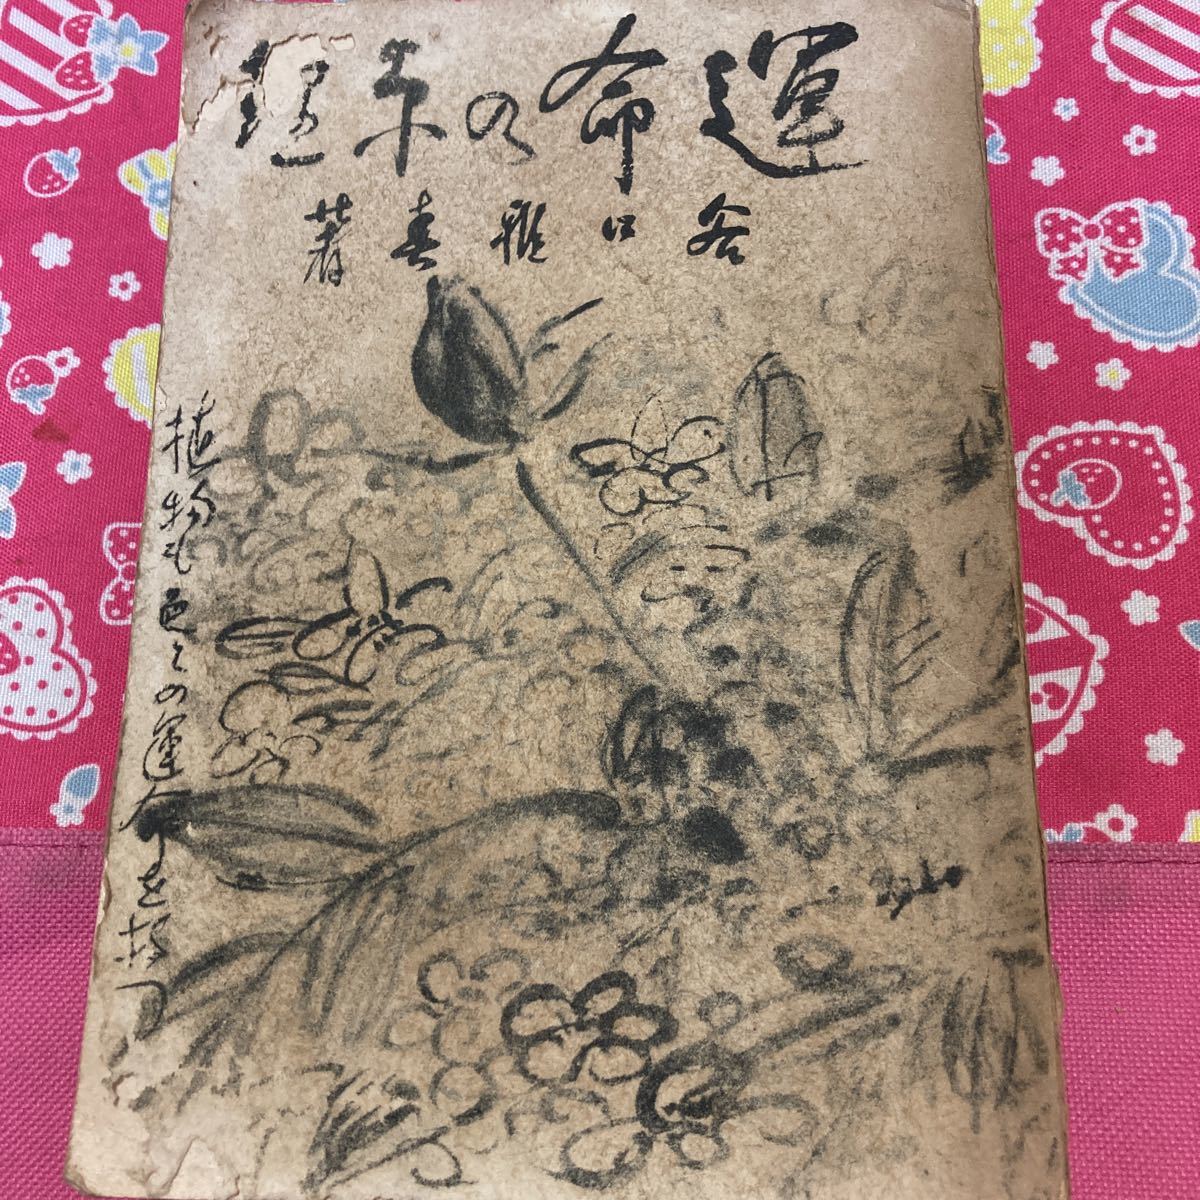 運命の
谷口雅春著
植物も色々の運命を持つ